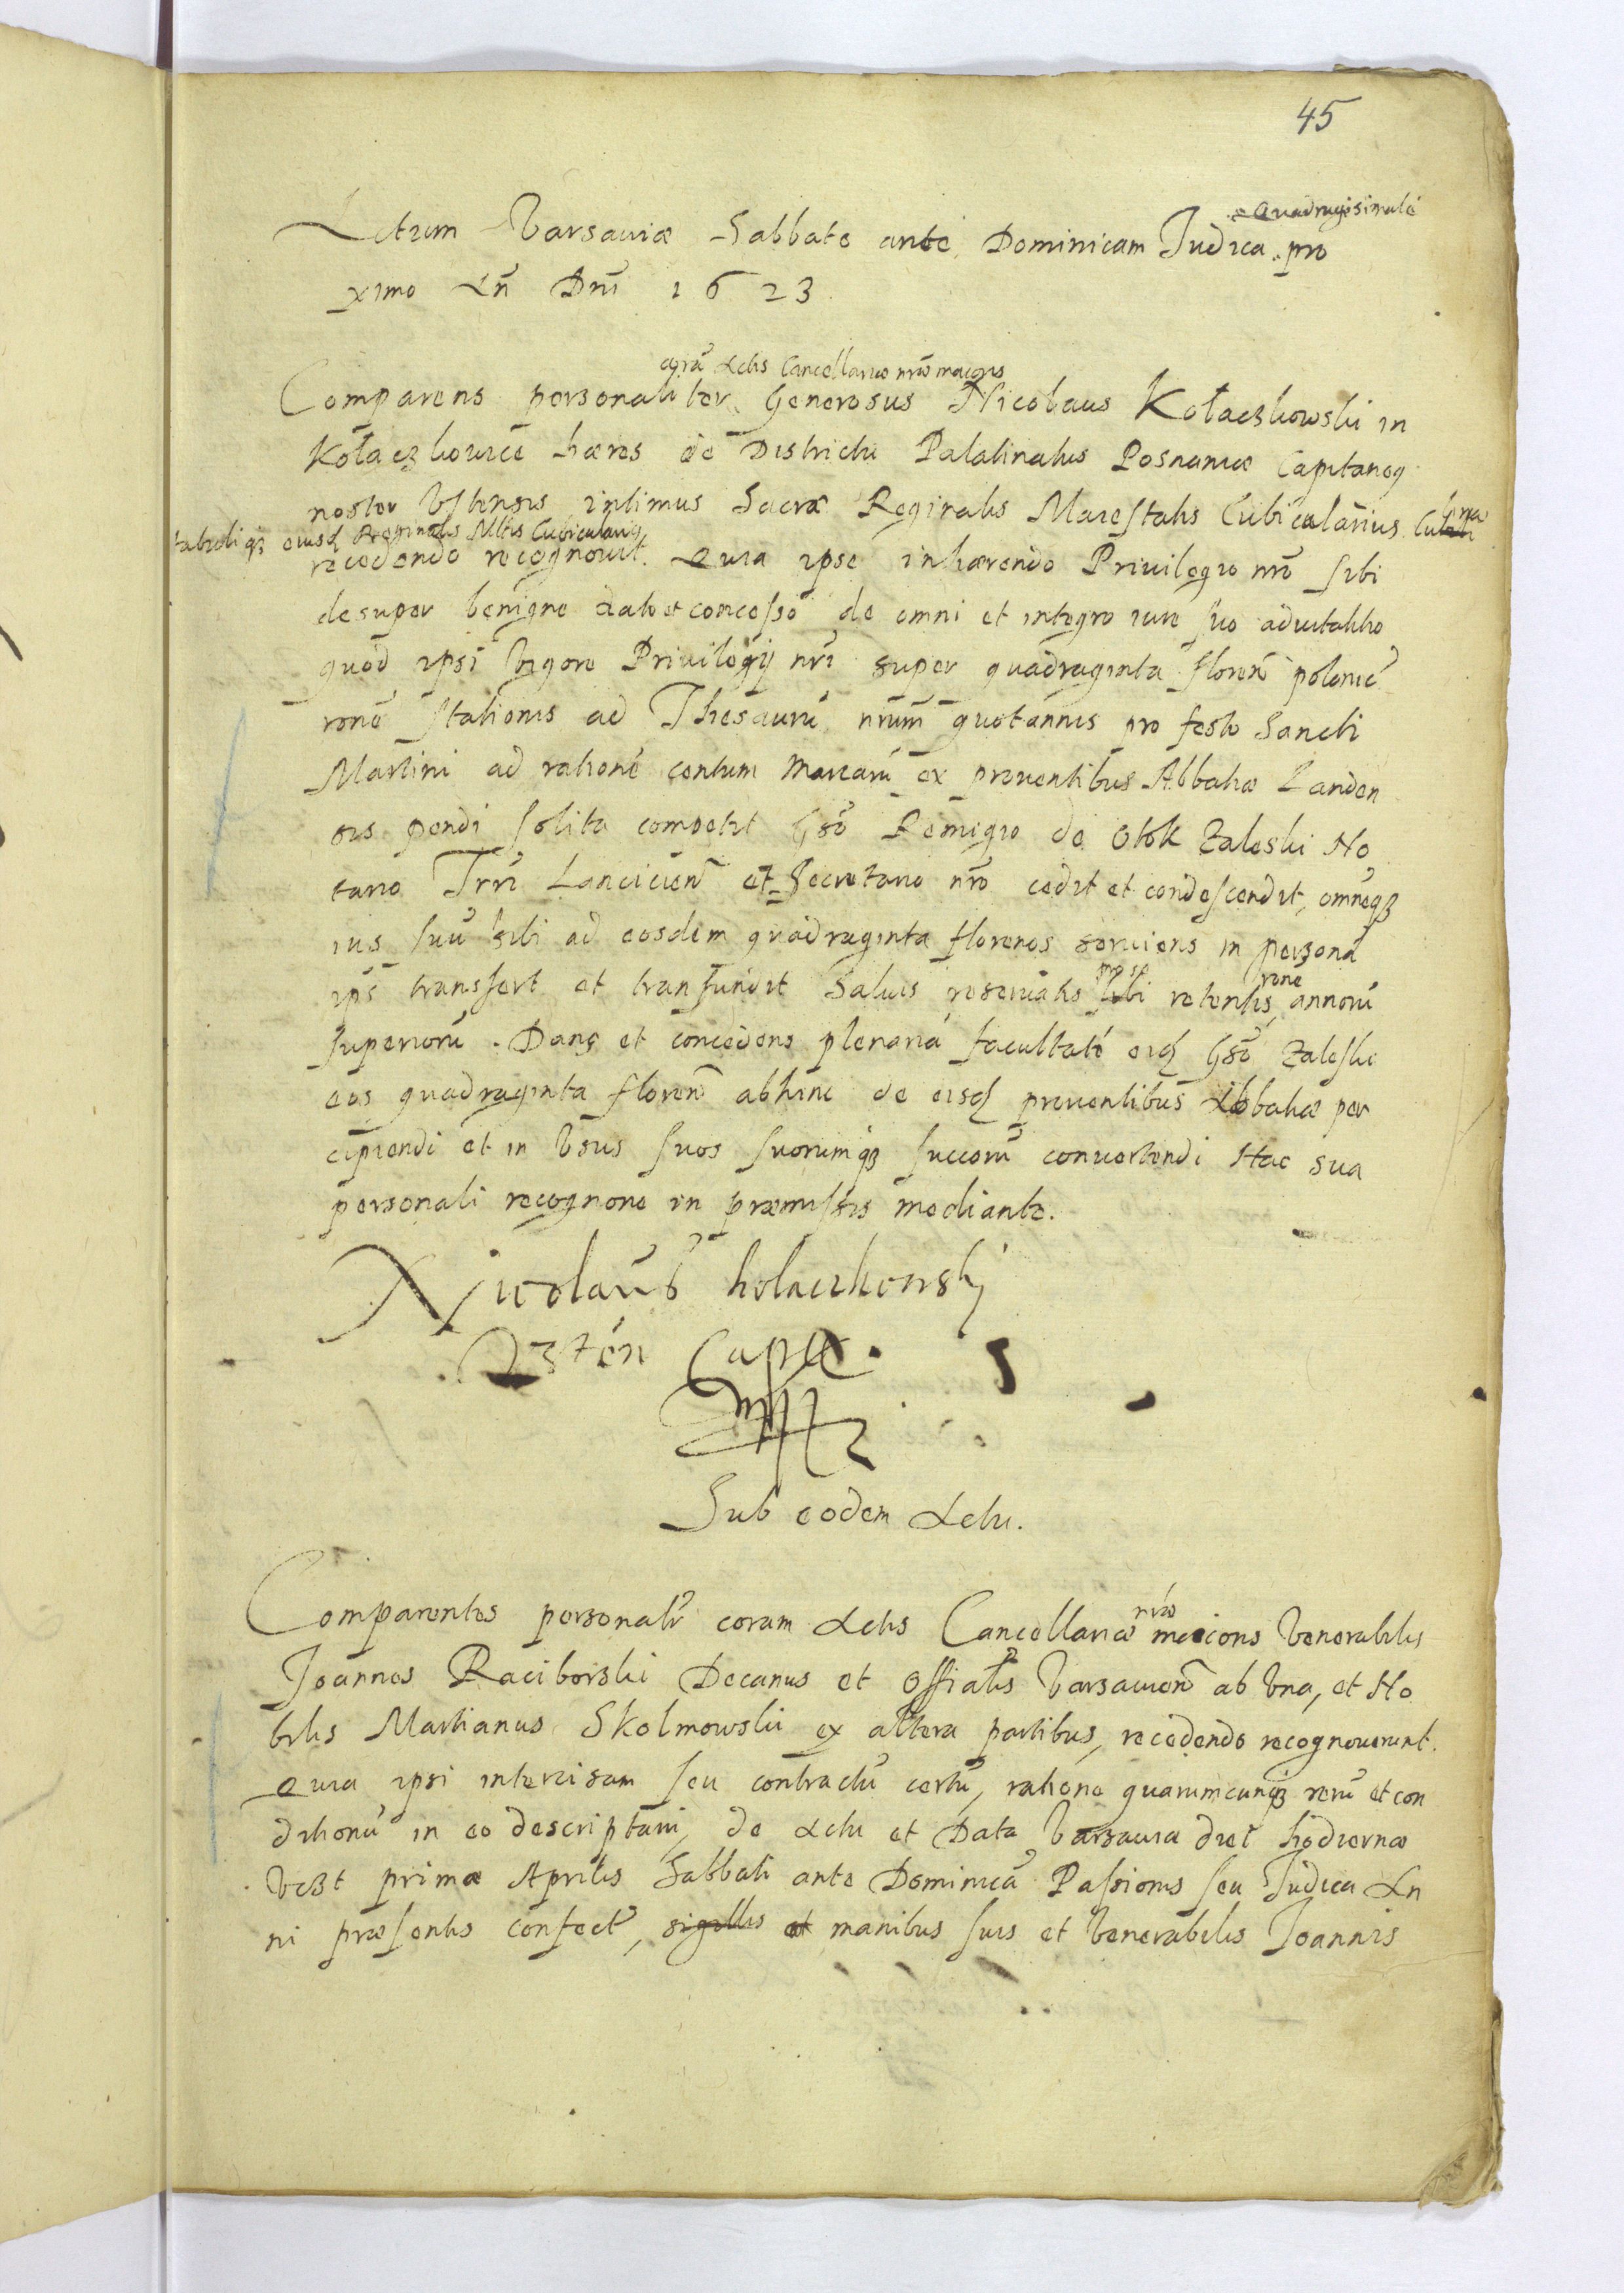 45
Quadragesimale
Actum Varsauiæ Sabbato ante Dominicam Judica pro
ximo An̄ Dnī 1623
corā Actis Cancellariæ nr̄æ maioris
Comparens personaliter Generosus Nicolaus Kołaczkowski in
Kołaczkowice hæres de Districtu Palatinatus Posnaniæ Capitaneq
noster Vstensis intimus Sacræ Reginalis Maiestatis Cubicularius
eiusd Reginalis Mttis Cubicularius
recedendo recognouit. Quia ipse inhærendo Priuilegio nr̄o sibi
desuper benigne dato et concesso de omni et integro iure suo aduitalitio
quod ipsi vigore Priuilegij nr̄i super quadraginta floren̄ polonic̄
ron̄e stationis ad Thesaurū nr̄um quotannis pro festo Sancti
Martini ad rationē centum marcarū ex prouentibus Abbatiæ Landen
sis pendi solita competit Gs̄o Remigio de Otok Zaleski No
tario Trr̄i Lancicien̄ et Secretario nr̄o cedit et condescendit, omneqꝫ
ius suū sibi ad eosdem quadraginta florenos seruiens in personā
ips̄ transfert et transfundit Saluis reseruatis sibi retentis annorū
pro se
ron̄e
superiorū. Dans et concedens plenariā facultatē eid Gs̄o Zaleski
eos quadraginta floren̄ abhinc de eisd prouentibus Abbatiæ per
cipiendi et in Vsus suos suorumqꝫ succorū conuertendi Hac sua
personali recogn̄one in præmissis mediante.
Nicolaūs kolaczkowskj
Vzten Capit
Sub eodem Actu.
Comparentes personalr̄ coram Actis Cancellariæ nr̄æ maioris Venerabilis
Joannes Raciborski Decanus et Offialis Varsauien̄ ab Vna, et No
bilis Martianus Skolmowski ex altera partibus, recedendo recognouerunt.
Quia ipsi intercisam seu contractū certū, ratione quarumcunqꝫ rerū et con
ditionū in eo descriptam, de Actu et Data Varsauia diei hodiernæ
vꝫt primæ Aprilis Sabbati ante Dominicā Passionis seu Judica An
ni præsentis confect̄, sigillis et manibus suis et Venerabilis Joannis